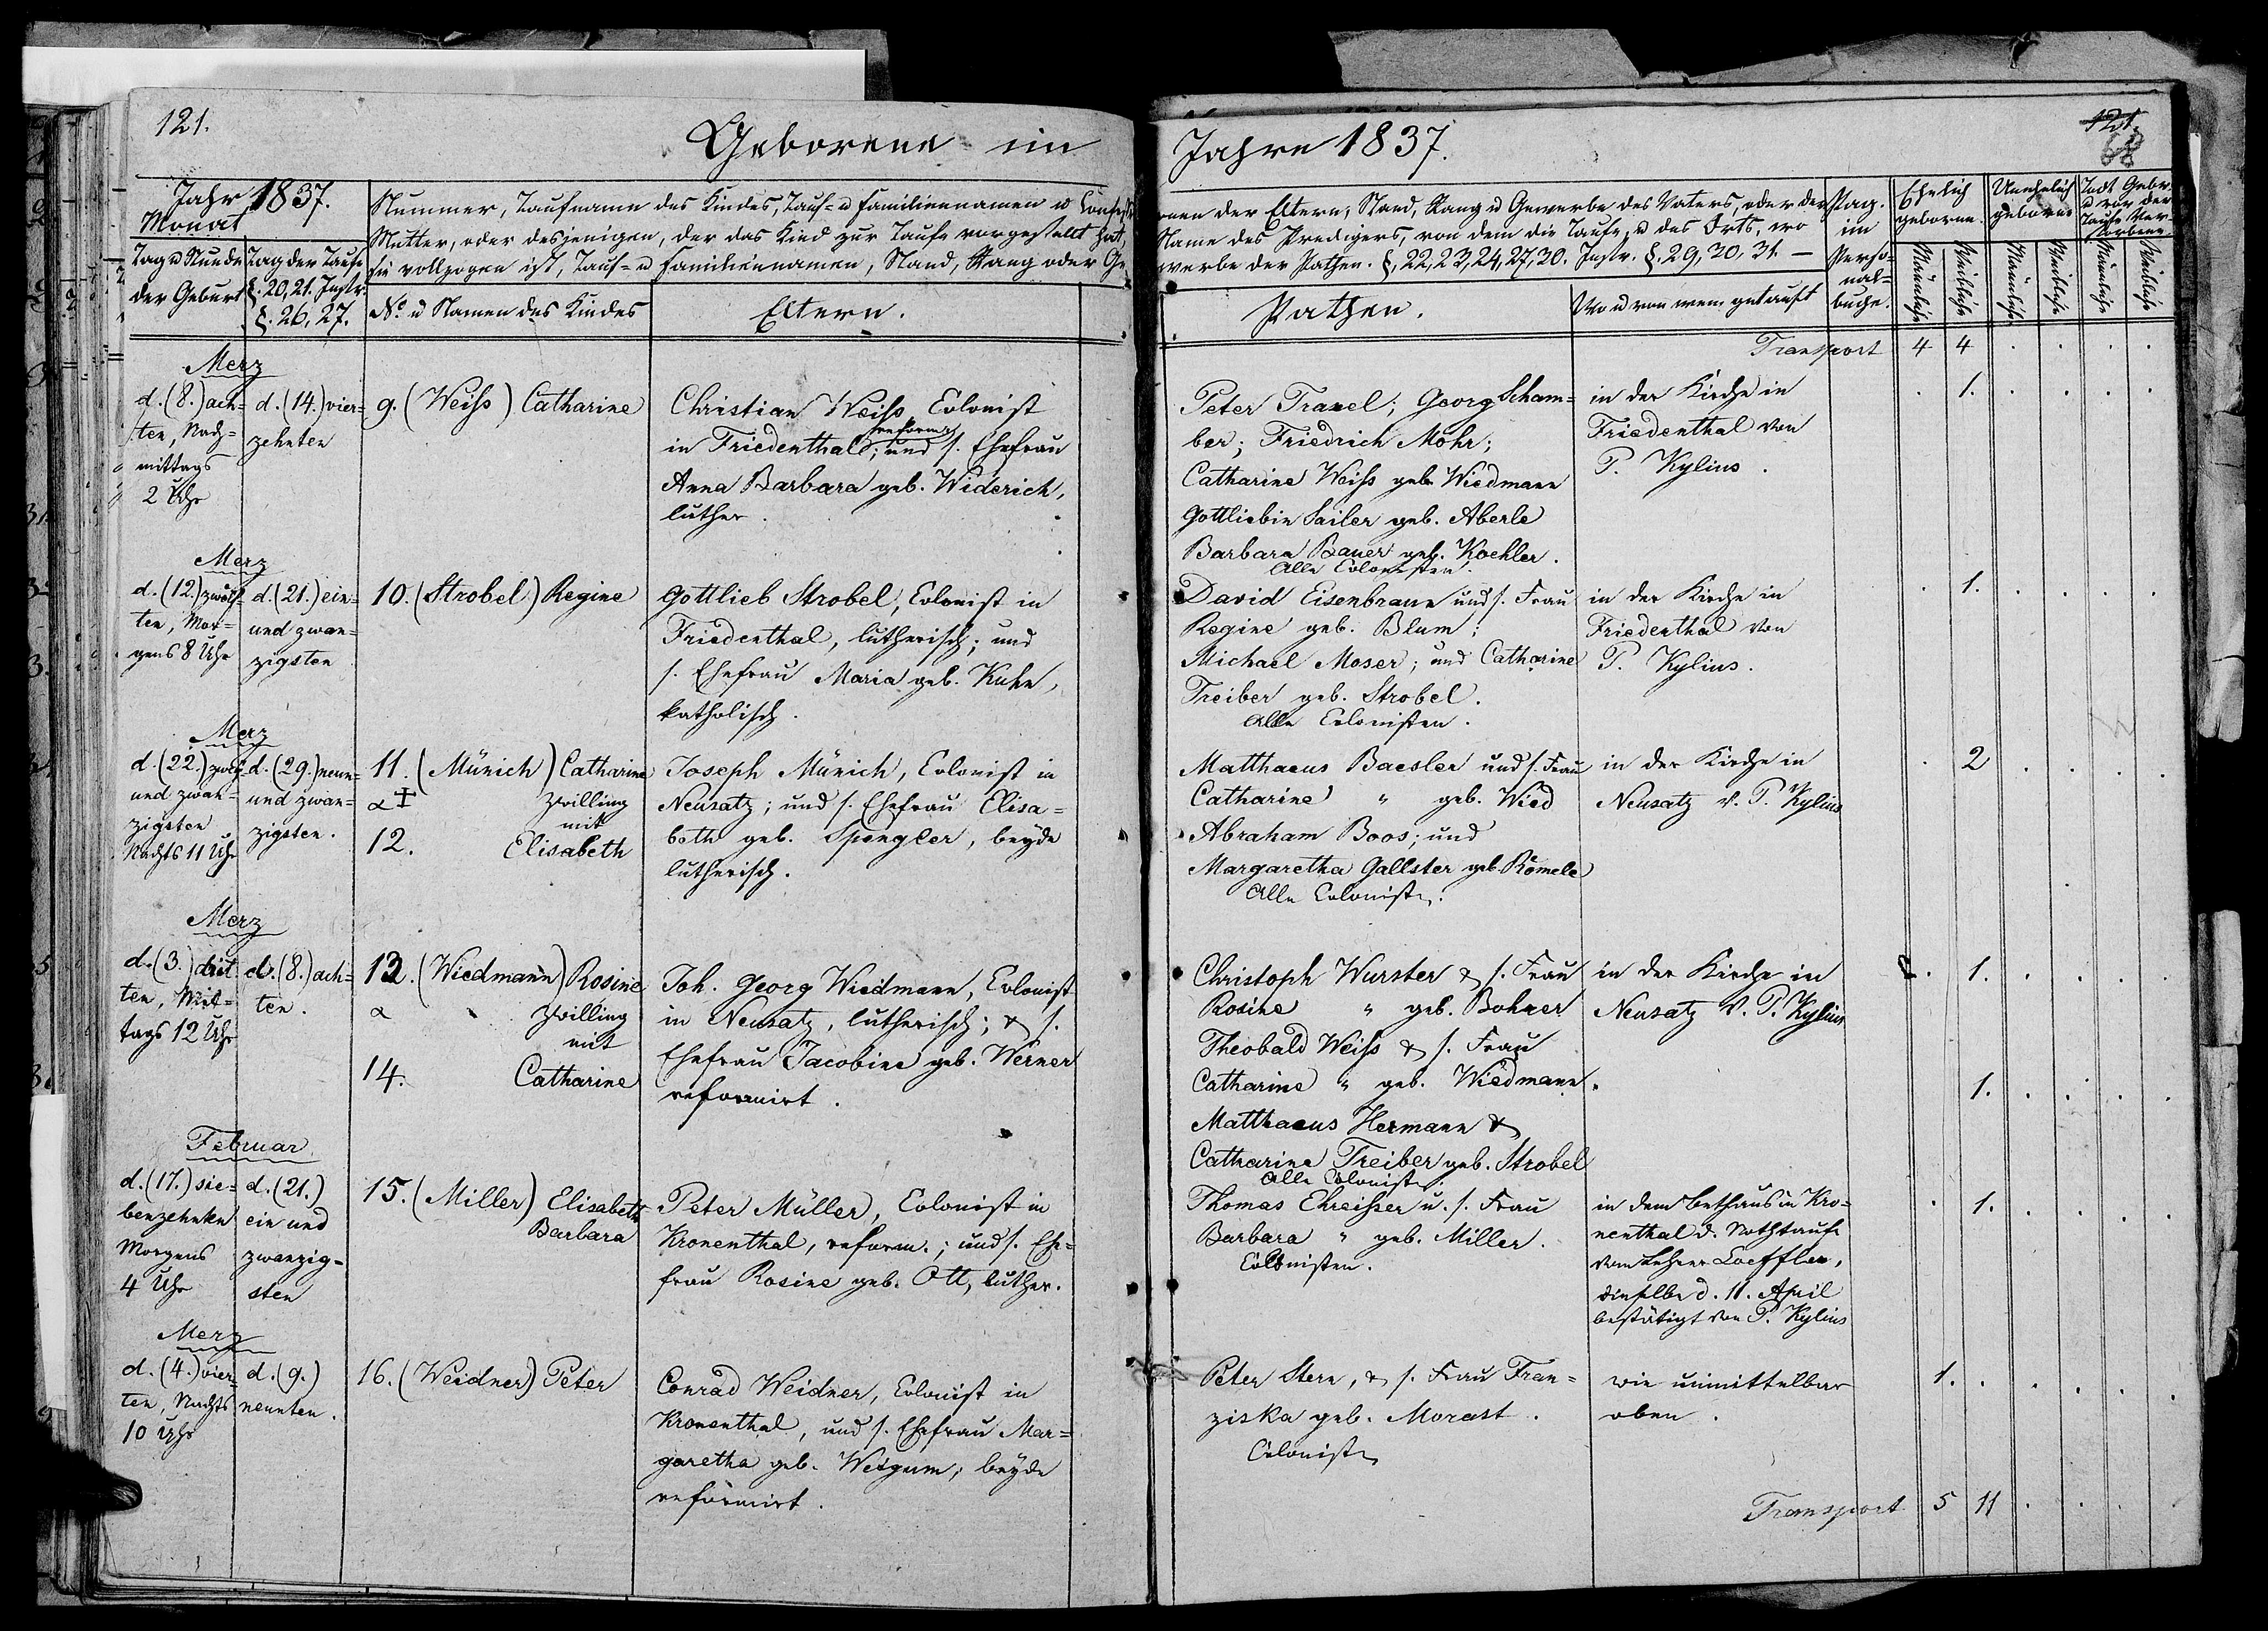 121.
Geborene im
Jahre 1837.
121.
68
Jahr 1837.
Monat
Tag u Stunde
der Geburt
Tag der Taufe
§. 20, 21. Instr.
§. 26, 27.
Nummer, Taufname des Kindes, Tauf- u Familiennamen u Confess
Mutter, oder desjenigen, der das Kind zur Taufe vorgestellt hat,
sie vollzogen ist, Tauf- u Familiennamen, Stand, Rang oder Ge
No. u Namen des Kindes
Eltern.
onen der Eltern, Stand, Rang u Gewerbe des Vaters, oder der
Name des Predigers, von dem die Taufe, u des Orts, wo
werbe der Pathen. §. 22, 23, 24, 27, 30. Instr. §. 29, 30, 31. —
Pathen.
Wo u von wem getauft
Pag.
im
Perso-
nal-
buche.
Ehelich
geborne.
Unehelich
geborne
Todt Gebr.
u vor der
Taufe Ver-
storbene.
Männliche
Weibliche
Männliche
Weibliche
Männliche
Weibliche
Transport 4 4 . . . .
Merz
d. (8.) ach=
ten, Nach=
mittags
2 Uhr
d. (14.) vier=
zehnten
9. (Weiss) Catharine
Christian Weiss, Colonist
reform.
in Friedenthal; und s. Ehefrau
Anna Barbara geb. Widerich,
luther.
Peter Traxel; Georg Scham=
ber; Friedrich Mohr;
Catharine Weiss geb. Wiedmann
Gottliebin Sailer geb. Aberle
Barbara Bauer geb. Koehler.
Alle Colonisten.
in der Kirche in
Friedenthal von
P. Kylius.
. 1. . . . .
Merz
d. (12.) zwölf=
ten, Mor=
gens 8 Uhr
d. (21.) ein=
und zwan=
zigsten
10. (Strobel) Regine
Gottlieb Strobel, Colonist in
Friedenthal, lutherisch; und
s. Ehefrau Maria geb. Kuhn,
katholisch.
David Eisenbraun und s. Frau
Regine geb. Blum;
Michael Moser; und Catharine
Treiber geb. Strobel.
Alle Colonisten.
in der Kirche in
Friedenthal von
P. Kylius.
. 1. . . . .
Merz
d. (22.) zwei
und zwan=
zigsten
Nachts 11 Uhr
d. (29.) neun=
und zwan=
zigsten.
11. (Münich) Catharine
α ‡ Zwilling
mit
12. Elisabeth
Joseph Münich, Colonist in
Neusatz; und s. Ehefrau Elisa=
beth geb. Spengler, beyde
lutherisch.
Matthaeus Baesler und s. Frau
Catharine " geb. Wied
Abraham Boos; und
Margaretha Gallster geb. Römele
Alle Colonisten.
in der Kirche in
Neusatz v. P. Kylius
. 2 . . . .
Merz
d. (3.) drit
ten, Mit=
tags 12 Uhr
d. (8.) ach=
ten.
13. (Wiedmann) Rosine
α Zwilling
mit
14. Catharine
Joh. Georg Wiedmann, Colonist
in Neusatz, lutherisch; & s.
Ehefrau Jacobine geb. Werner
reformirt.
Christoph Wurster & s. Frau
Rosine " geb. Bohner
Theobald Weiss & s. Frau
Catharine " geb. Wiedmann.
Matthaeus Hermann &
Catharine Treiber geb. Strobel
Alle Colonisten.
in der Kirche in
Neusatz v. P. Kylius
. 1. . . . .
1. . . . .
Februar
d. (17.) sie=
benzehnten
Morgens
4 Uhr
d. (21.)
ein und
zwanzig=
sten
15. (Miller) Elisabeth
Barbara
Peter Müller, Colonist in
Kronenthal, reform.; und s. Ehe=
frau Rosine geb. Ott, luther.
Thomas Ehreisser u. s. Frau
Barbara " geb. Miller.
Colonisten.
in dem Bethaus in Kro=
nenthal d. Nothtaufe
vom Lehrer Loeffler,
dieselbe d. 11. April
bestätigt von P. Kylius
. 1. . . . .
Merz
d. (4.) vier=
ten, Nachts
10 Uhr
d. (9.)
neunten.
16. (Weidner) Peter
Conrad Weidner, Colonist in
Kronenthal, und s. Ehefrau Mar=
garetha geb. Weigum; beyde
reformirt.
Peter Stern, & s. Frau Fran=
ziska geb. Morast.
Colonisten
wie unmittelbar
oben.
1. . . . . .
Transport 5 11 . . .